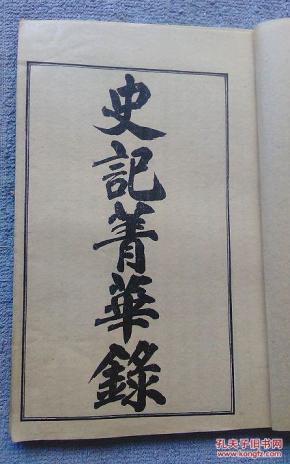 史記菁華錄
孔夫子旧书网
www.kongfz.com